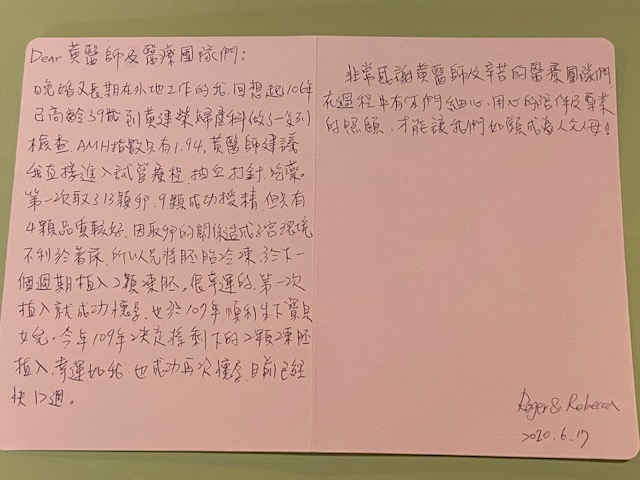 Dear 黃醫師及醫療團隊們：
晚婚又長期在外地工作的我，回想起106年
已高齡39歲到黃建榮婦產科做了一系列
檢查，AMH指數只有1.94，黃醫師建議
我直接進入試管療程，抽血、打針、吃藥。
第一次取了13顆卵，9顆成功授精，但只有
4顆品質較好，因取卵的關係造成子宮環境
不利於著床，所以先將胚胎冷凍，於下一
個週期植入2顆凍胚。很幸運的，第一次
植入就成功懷孕，也於107年順利生下寶貝
女兒。今年109年決定將剩下的2顆凍胚
植入，幸運如我，也成功再次懷孕，目前已經
快12週。
非常感謝黃醫師及辛苦的醫療團隊們
在過程中有你們細心、用心的陪伴及專業
的照顧，才能讓我們如願成為人父母！
Roger & Rebecca
2020.6.17